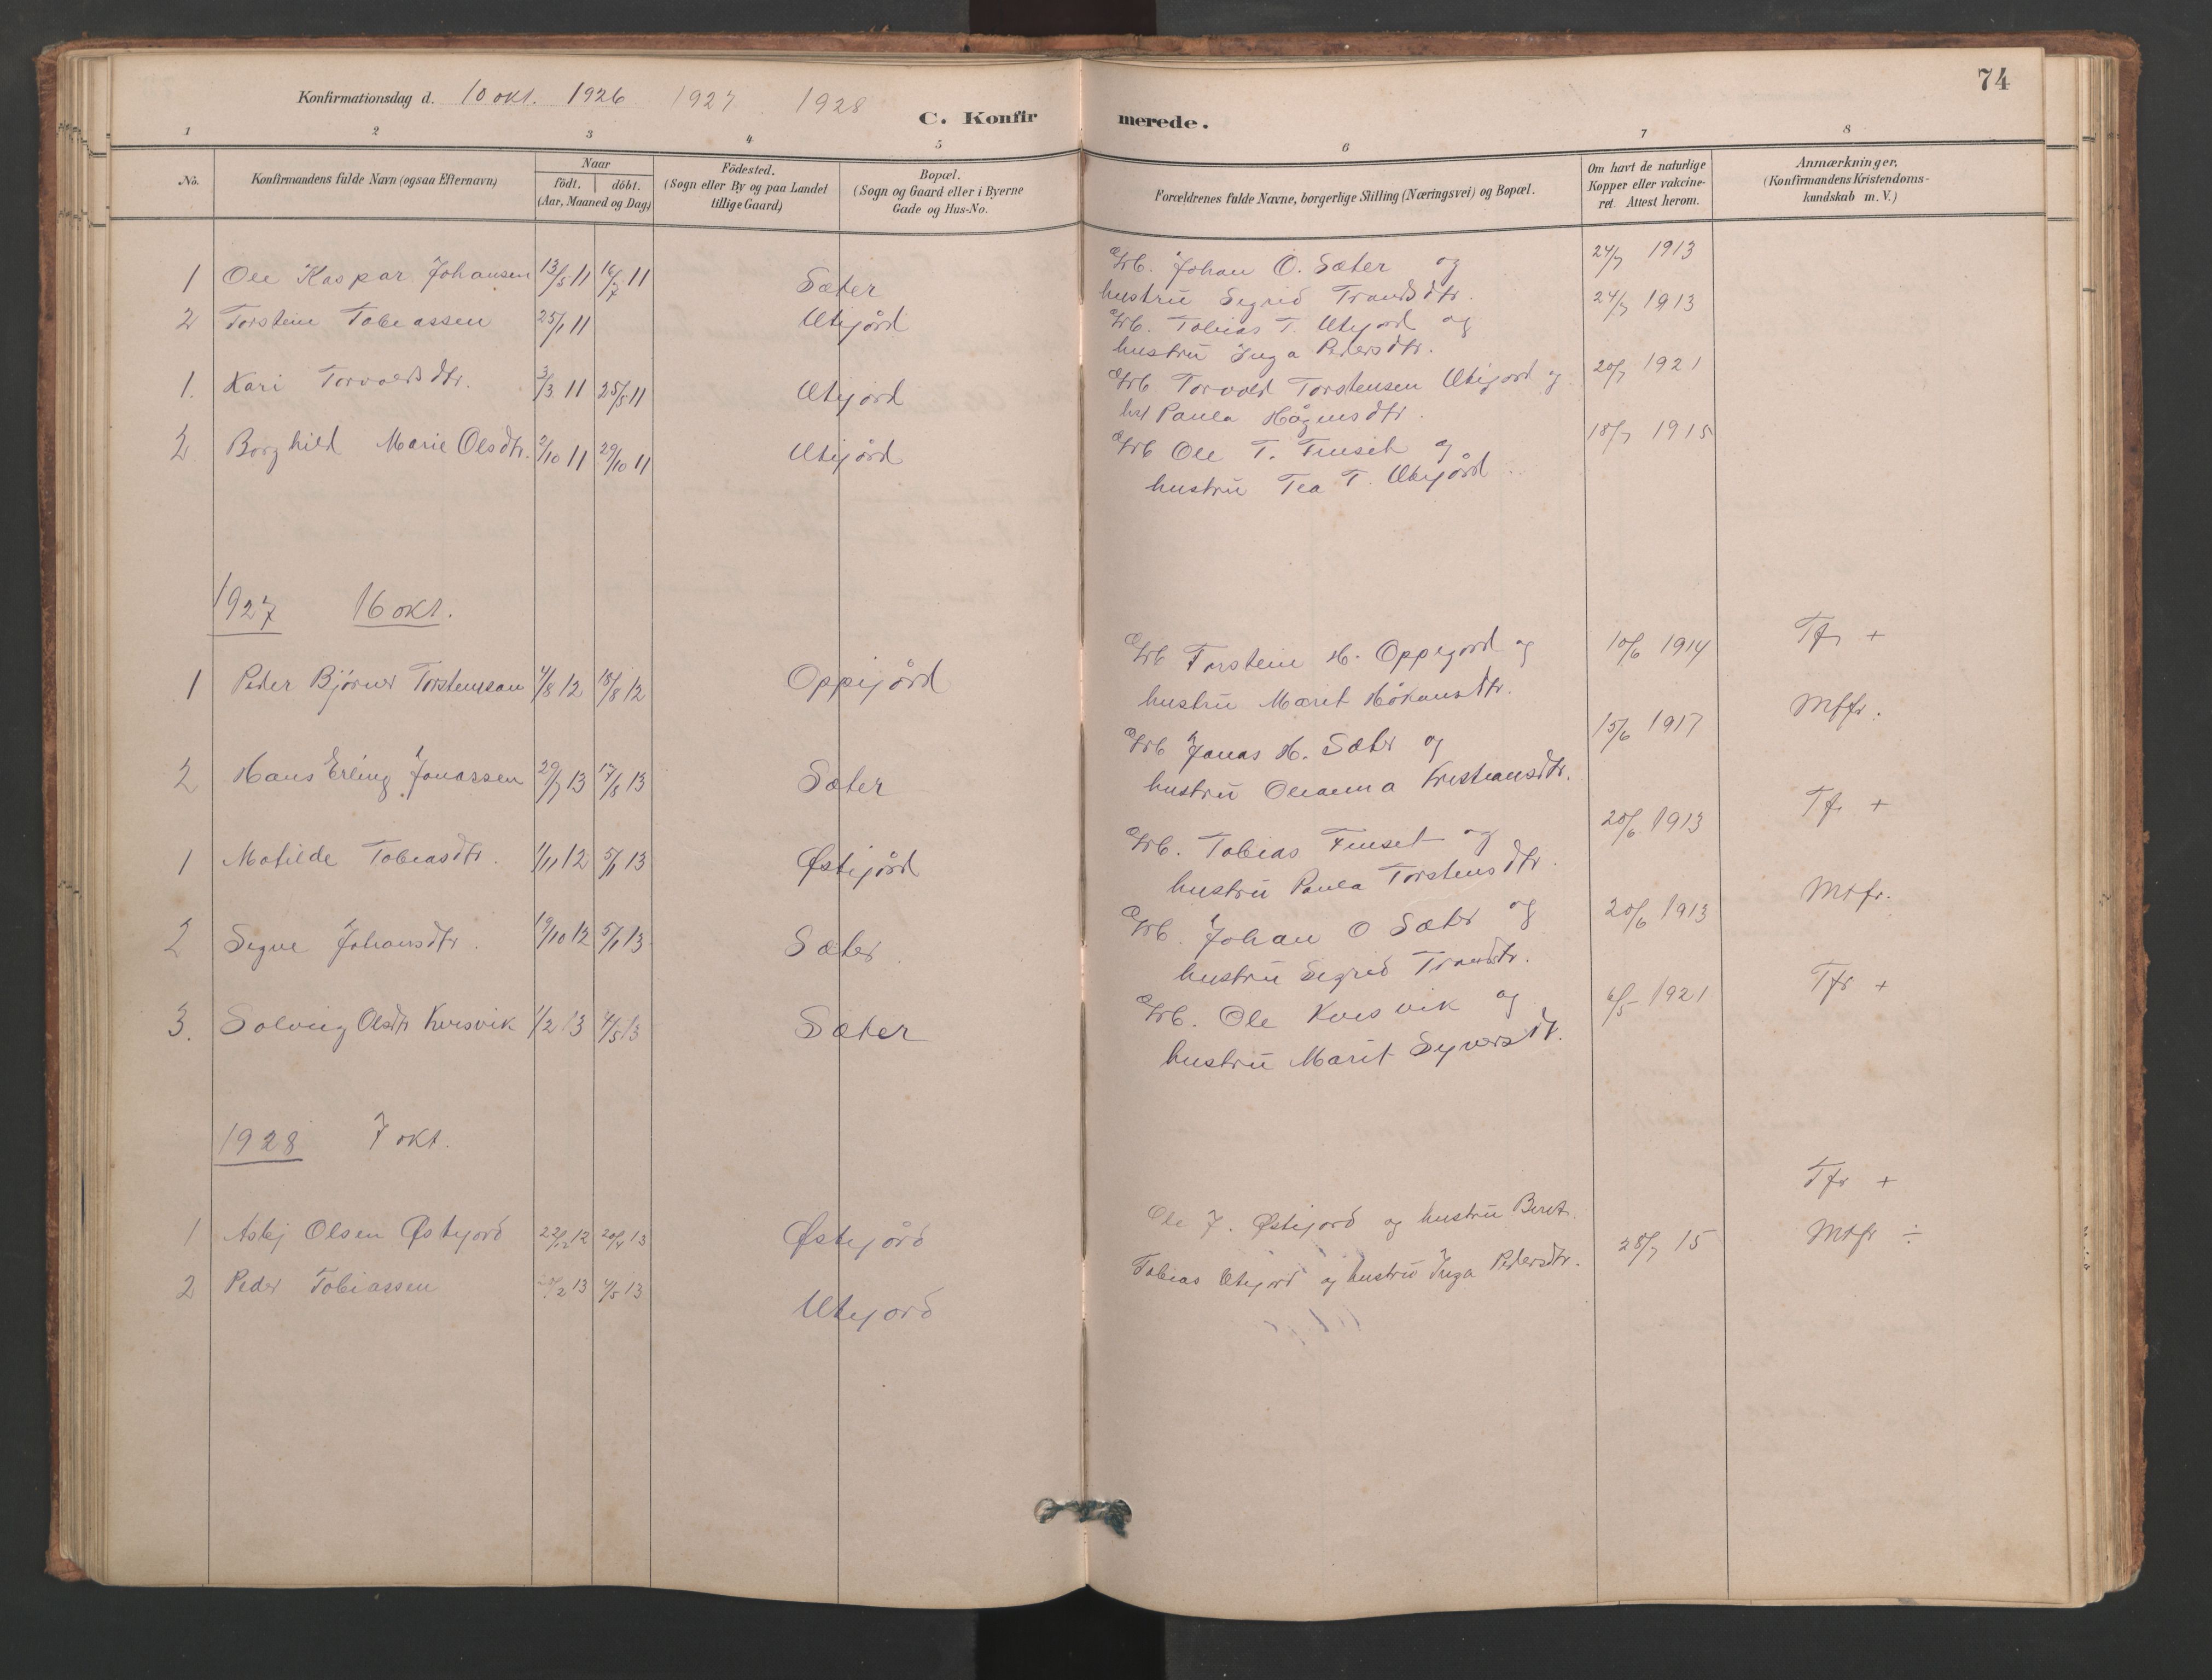 74
Konfirmationsdag d. 10 okt. 1926 1927 1928
C. Konfirmerede.
1 2 3 4 5 6 7 8
No.
Konfirmandens fulde Navn (ogsaa Efternavn)
Naar
födt. döbt.
(Aar, Maaned og Dag)
Födested.
(Sogn eller By og paa Landet
tillige Gaard)
Bopæl.
(Sogn og Gaard eller i Byerne
Gade og Hus-No.
Forældrenes fulde Navne, borgerlige Stilling (Næringsvei) og Bopæl.
Om havt de naturlige
Kopper eller vakcine-
ret. Attest herom.
Anmærkninger,
(Konfirmandens Kristendoms-
kundskab m. V.)
1 Ole Kaspar Johansen 13/5 11 16/7 11 Sæter Grb. Johan O. Sæter og 24/7 1913
hustru Sigrid Trondsdtr.
2 Torstein Tobiassen 25/1 11 Utigård Grb. Tobias T. Utigord og 24/7 1913
hustru Inga Pedersdtr.
1. Kari Torvaldsdtr. 3/3 11 25/5 11 Utigord Grb Torvald Torstensen Utigord og 20/7 1921
hst Paula Hågensdtr.
2 Borghild Marie Olsdtr. 2/10 11 29/10 11 Utigård Grb Ole T. Finset og 18/7 1915
hustru Tea T. Utigård
1927 16 okt.
1 Peder Björner Torstensen 4/8 12 18/8 12 Oppigård Grb Torstein H. Oppigord og 10/6 1914 Tfr +
hustru Marit Håkonsdtr.
2 Hans Erling Jonassen 29/7 13 17/8 13 Sæter Grb Jonas H. Sæter og 15/6 1917 Mtfr.
hustru Olianna Kristiansdtr.
1 Matilde Tobiasdtr. 1/11 12 5/1 13 Østigård Grb. Tobias Finset og 20/6 1913 Tfr +
hustru Paula Torstensdtr.
2 Signe Johansdtr. 19/10 12 5/1 13 Sæter. Grb. Johan O Sæter og 20/6 1913 Mtfr.
hustru Sigrid Trondsdtr.
3. Solveig Olsdtr Kvisvik 1/2 13 4/5 13 Sæter Grb. Ole Kvisvik og 6/5 1921 Tfr +
hustru Marit Syversdtr.
1928 7 okt.
1 Asbj Olsen Østigord 22/12 12 20/4 13 Østigård Ole J. Østigord og hustru Beret. Tfr +
2 Peder Tobiassen /2 13 4/5 13 Utigord Tobias Utigord og hustru Inga Pedersdtr. 28/7 15 Mtfr ÷